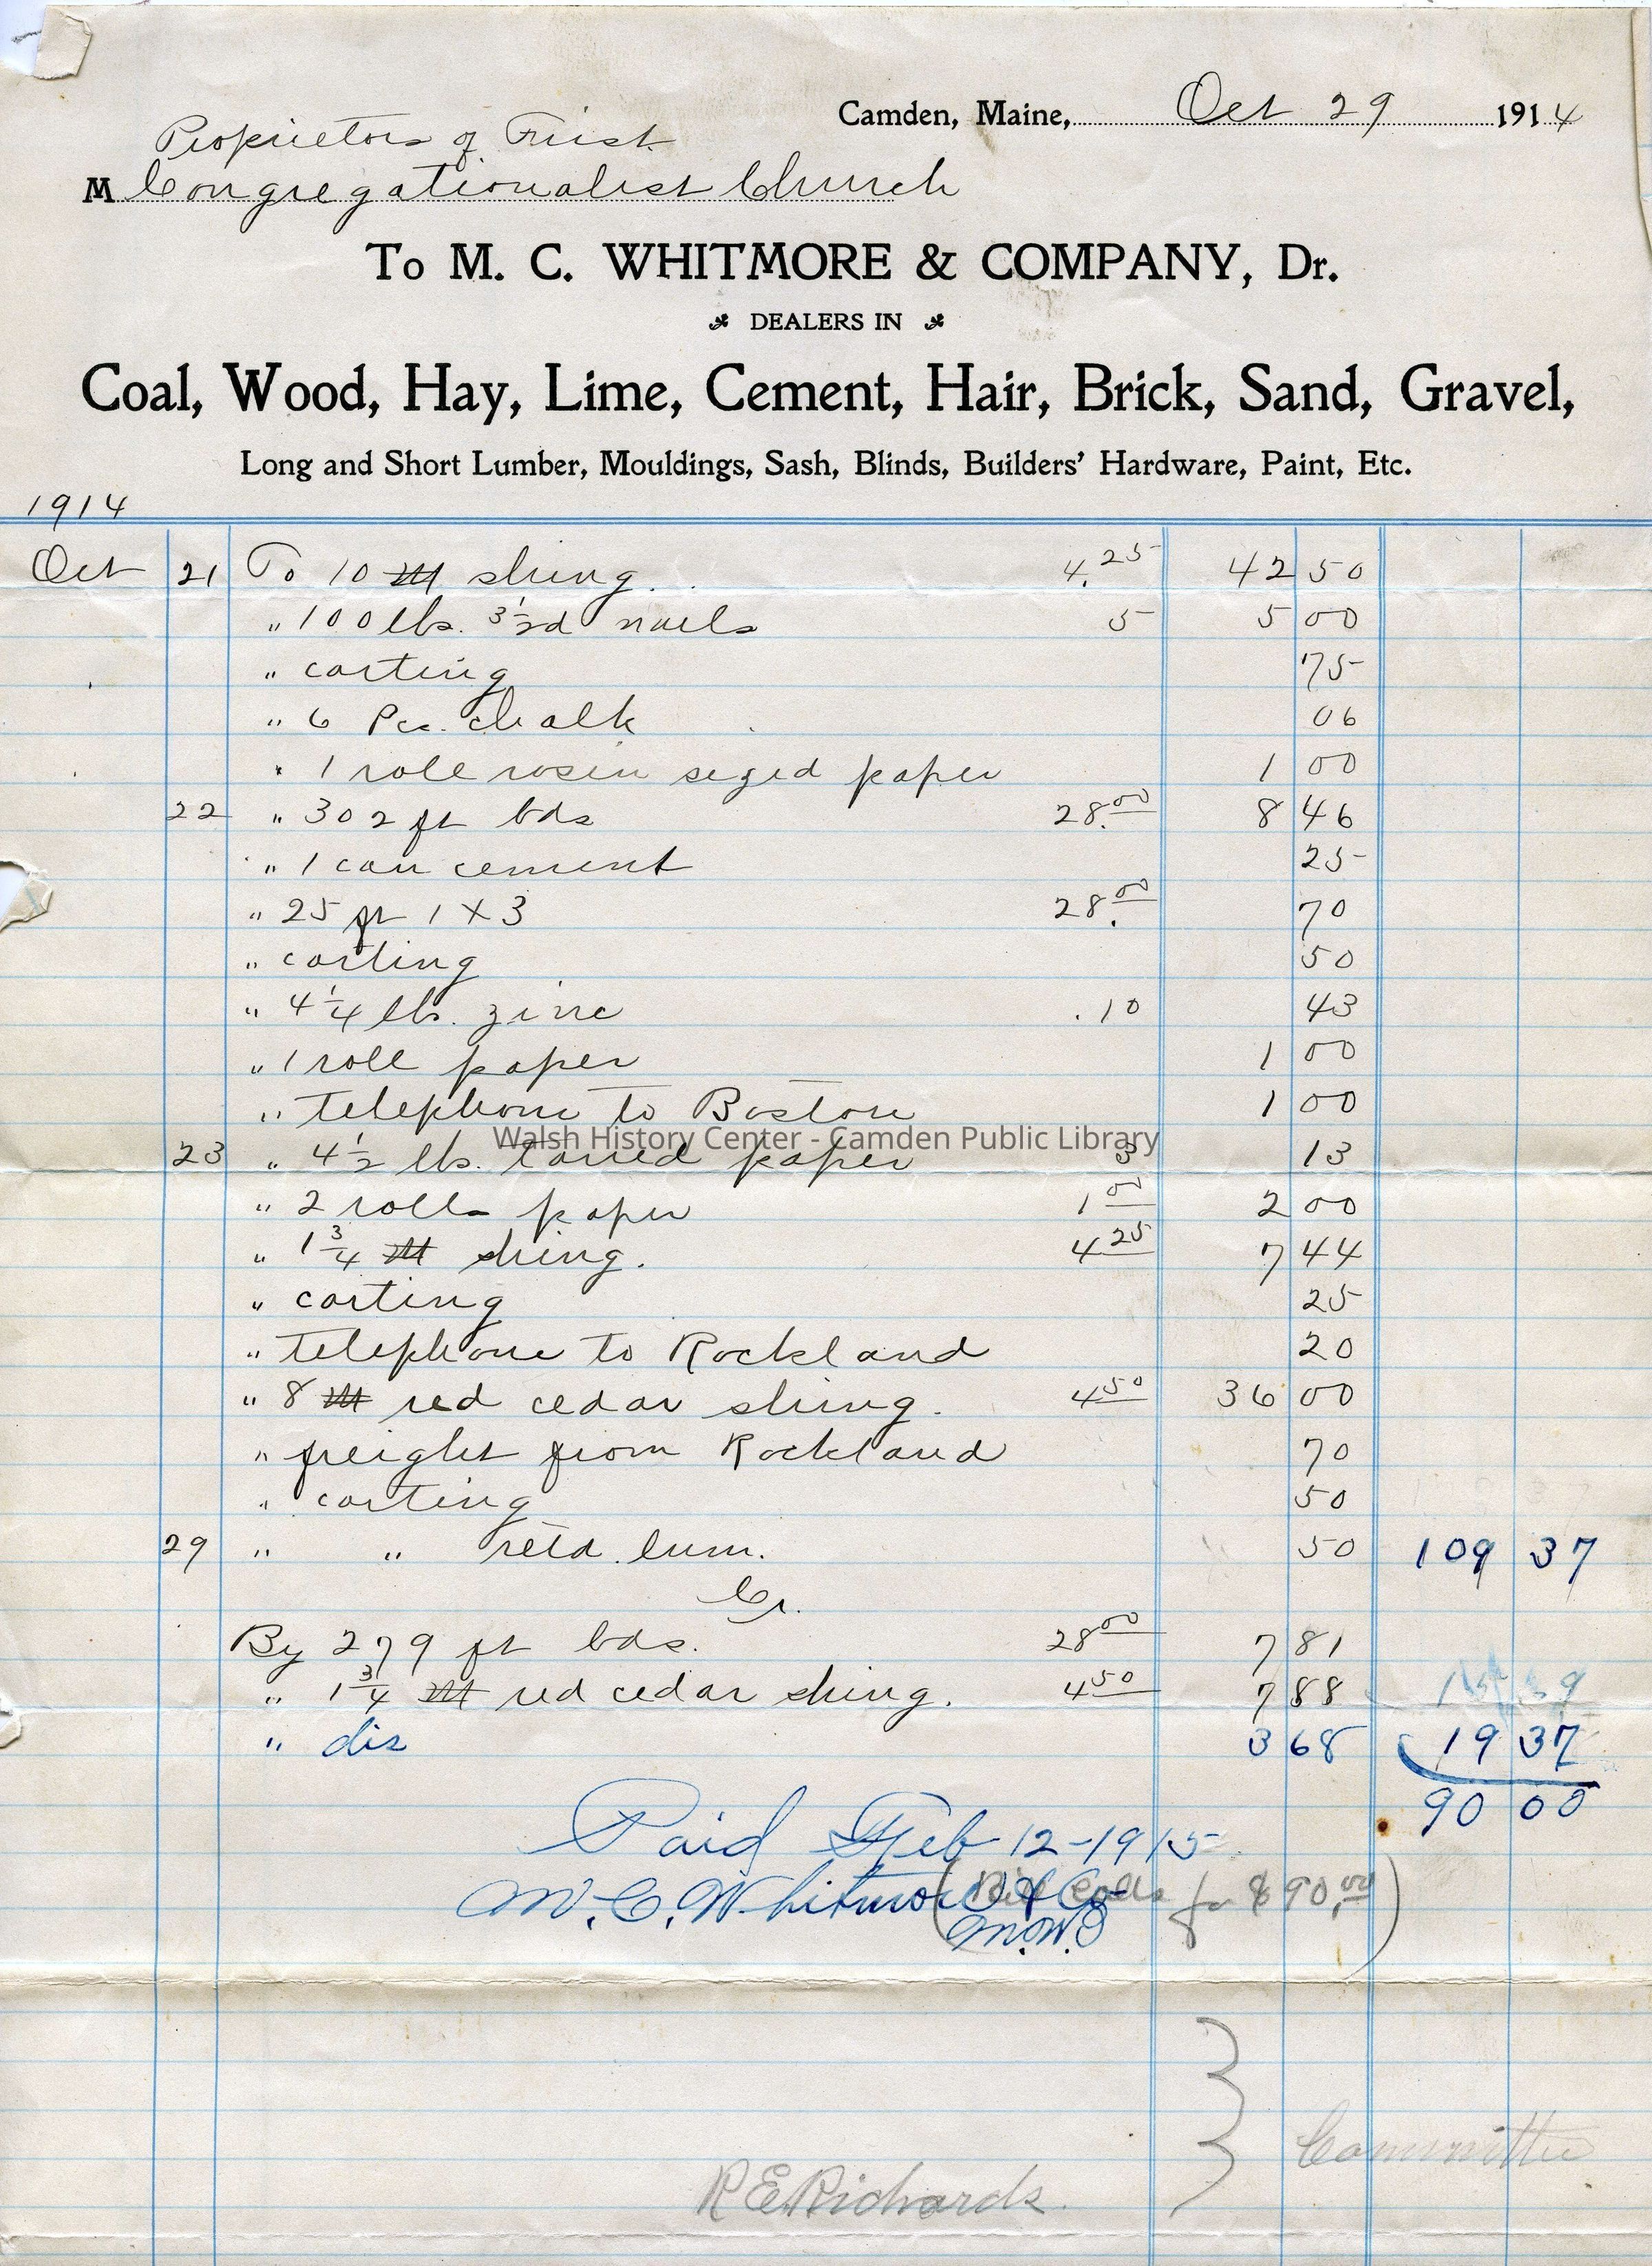 Camden, Maine, Oct 29 1914
Proprietors of First
M Congregationalist Church
To M. C. WHITMORE & COMPANY, Dr.
DEALERS IN
Coal, Wood, Hay, Lime, Cement, Hair, Brick, Sand, Gravel,
Long and Short Lumber, Mouldings, Sash, Blinds, Builders' Hardware, Paint, Etc.
1914
Oct 21 To 10 M shing. 4.25 42 50
" 100 lbs. 3 1/2d nails 5 5 00
" carting 75
" 6 Pcs. chalk 06
" 1 role rosin sezed paper 1 00
22 " 302 ft bds 28.00 8 46
" 1 can cement 25
" 25 ft 1 X 3 28.00 70
" carting 50
" 4 1/4 lbs. zinc .10 43
" 1 roll paper 1 00
" telephone to Boston 1 00
Walsh History Center - Camden Public Library
23 " 4 1/2 lbs. tarred paper 3 13
" 2 rolls paper 1 00 2 00
" 1 3/4 M shing. 4 25 7 44
" carting 25
" telephone to Rockland 20
" 8 M red cedar shing. 4 50 36 00
" freight from Rockland 70
" carting 50
29 " " retd. lum. 50 109 37
Cr.
By 279 ft bds. 28 00 7 81
" 1 3/4 M red cedar shing. 4 50 7 88
" dis 3 68 19 37
90 00
Paid Feb 12-1915
M. C. Whitmore & Co
(Bill calls for $90.00)
M.W.O
Committee
R E Richards.